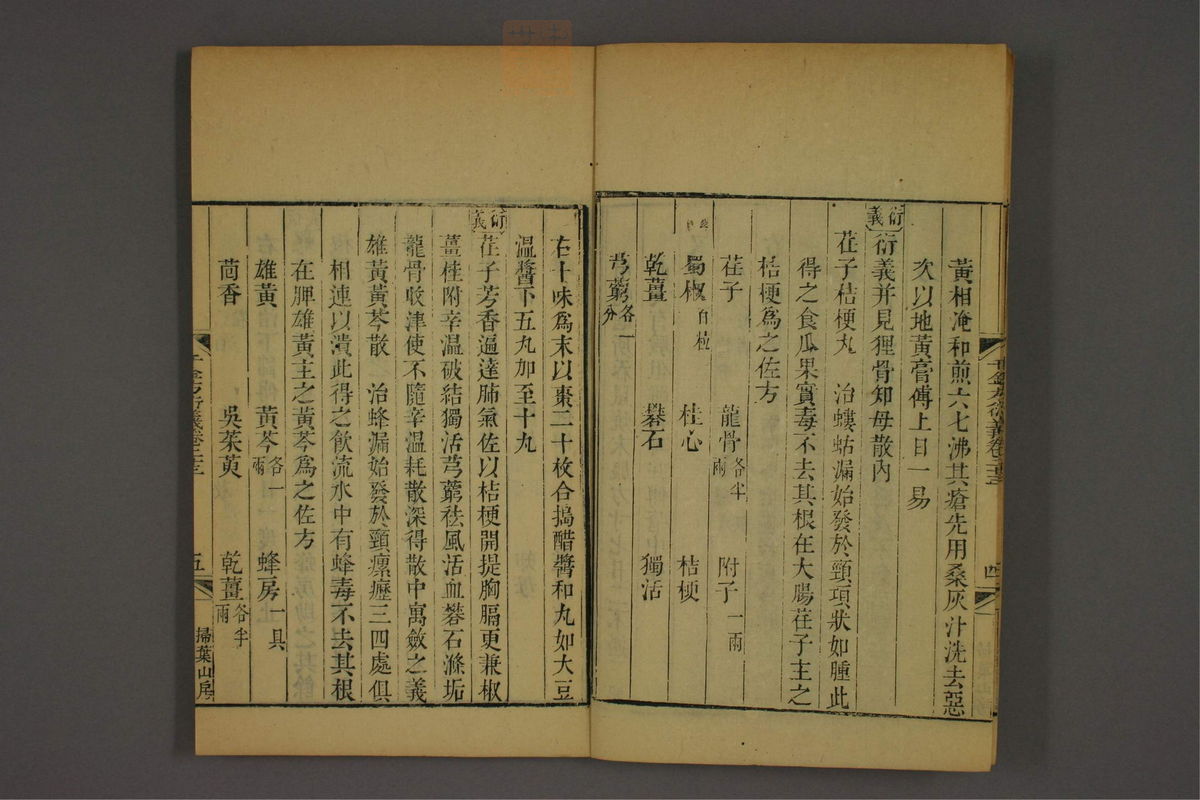 黃相淹和煎六七沸其瘡先用桑灰汁洗去惡
次以地黃膏傅上日一易
衍義
衍義并見狸骨知母散內
荏子桔梗丸　治螻蛄漏始發於頸項狀如腫此
得之食瓜果實毒不去其根在大腸荏子主之
桔梗爲之佐方
荏子　龍骨各半兩　附子一兩
蜀椒百粒　桂心　桔梗
乾薑　礬石　獨活
芎藭各一分
右十味爲末以棗二十枚合搗醋醬和丸如大豆
溫醬下五丸加至十丸
衍義
荏子芳香遍達肺氣佐以桔梗開提胸膈更兼椒
薑桂附辛溫破結獨活芎藭祛風活血礬石滌垢
龍骨收津使不隨辛溫耗散深得散中寓斂之義
雄黃黃芩散　治蜂漏始發於頸瘰癧三四處俱
相連以潰此得之飲流水中有蜂毒不去其根
在脾雄黃主之黃芩爲之佐方
雄黃　黃芩各一兩　蜂房一具
茴香　吳茱萸　乾薑各半兩
五
掃葉山房